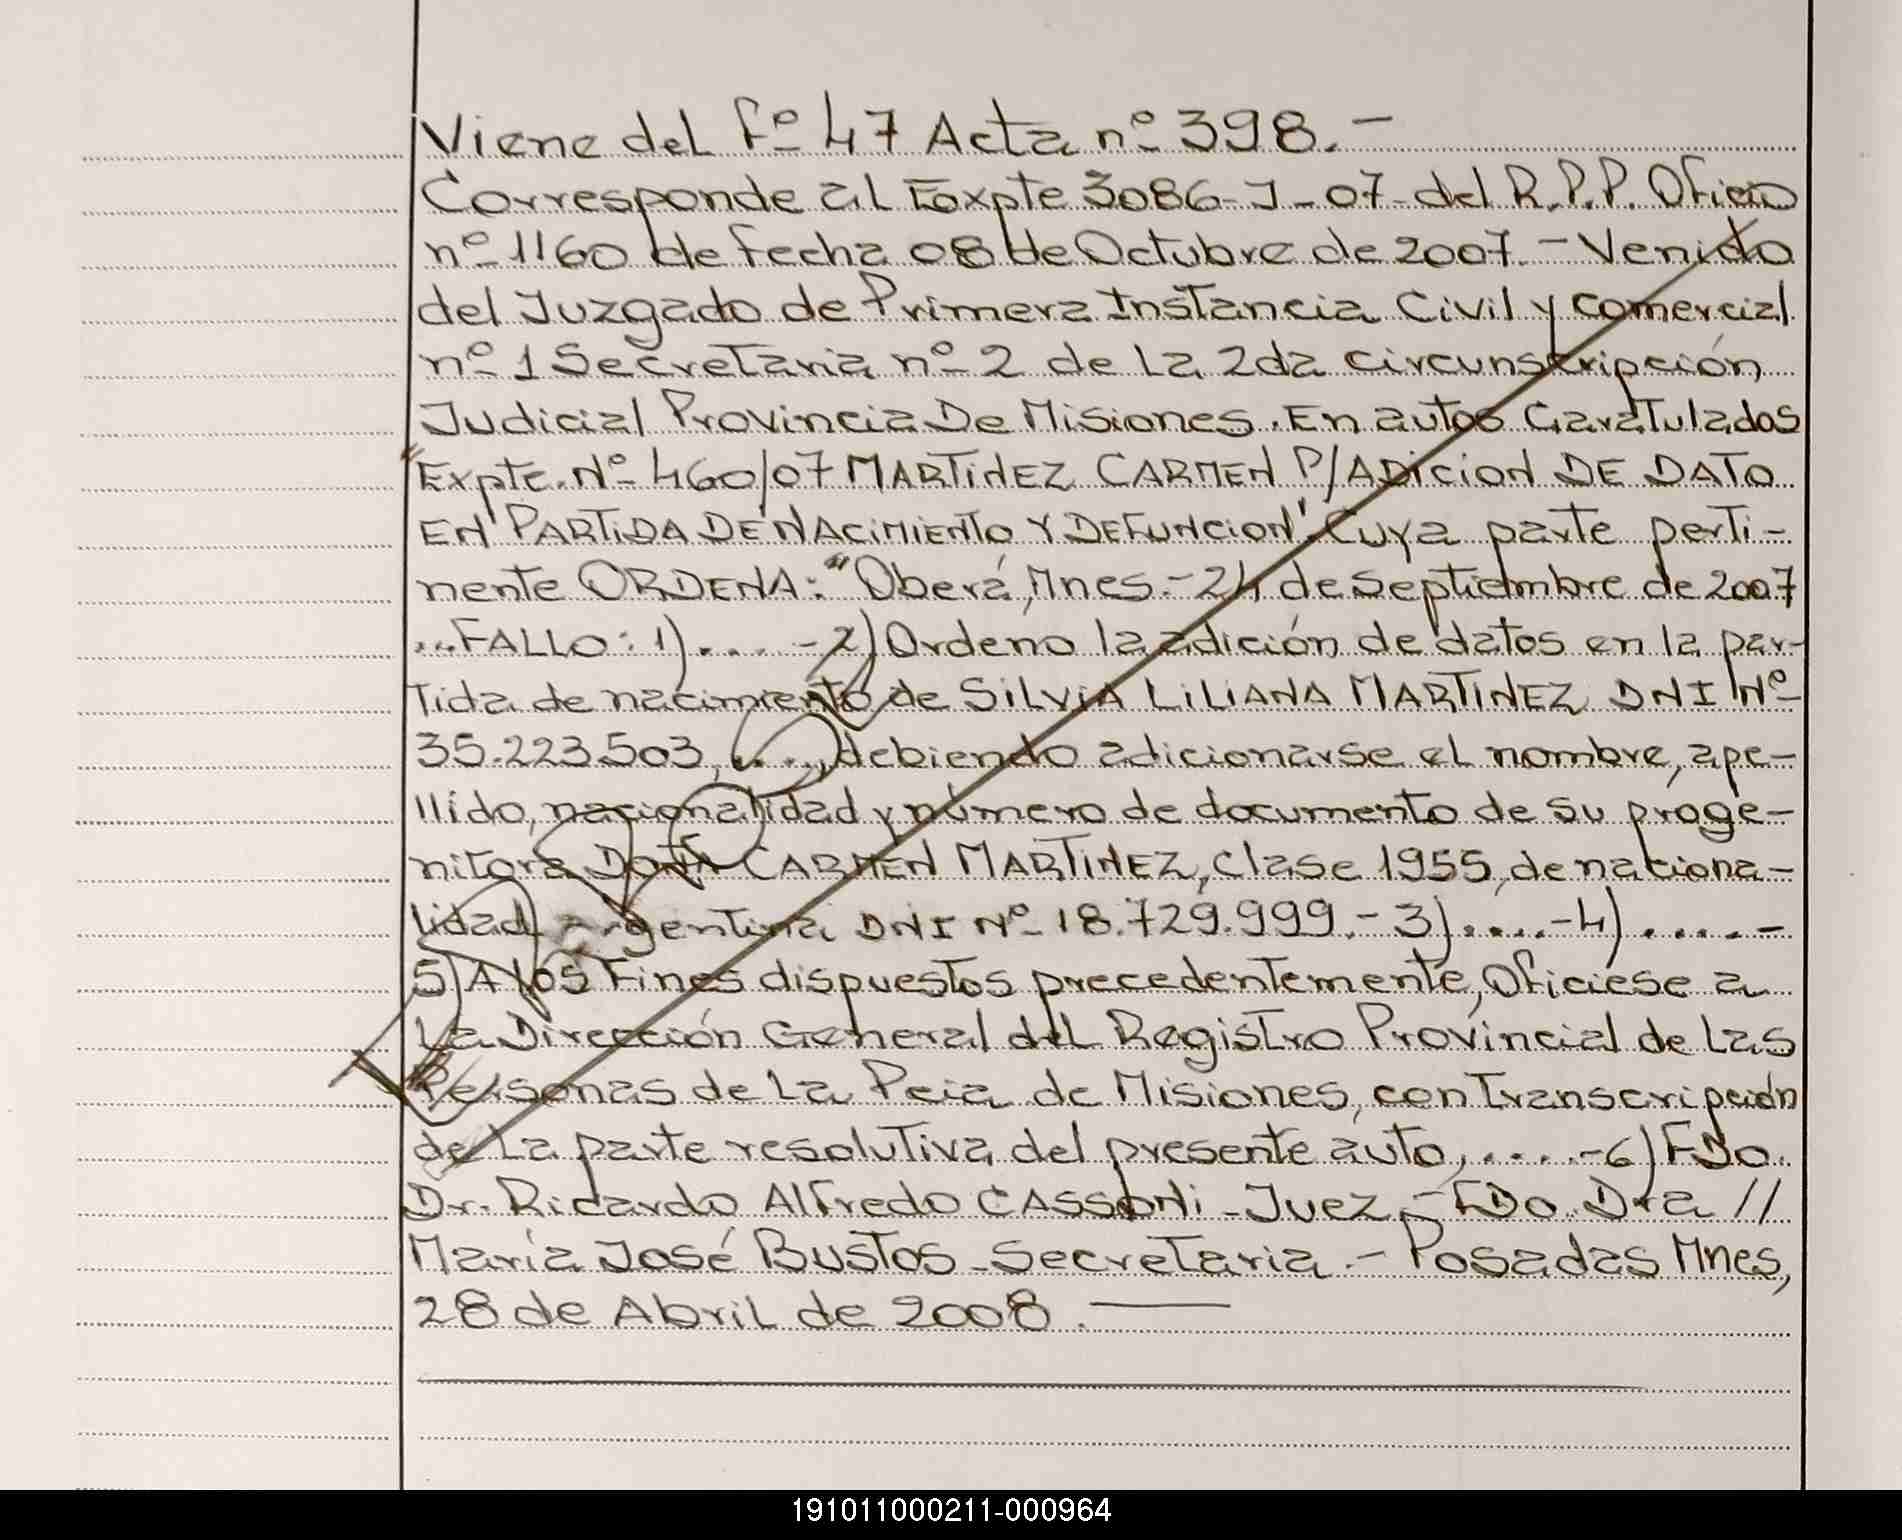 Viene del fº 47 Acta nº 398.-
Corresponde al Expte 3086-J-07-del R.P.P. Oficio
nº 1160 de fecha 08 de Octubre de 2007.- Venido
del Juzgado de Primera Instancia Civil y Comercial
nº 1 Secretaria nº 2 de La 2da circunscripción
Judicial Provincia De Misiones. En autos Caratulados
"Expte. Nº 460/07 MARTINEZ CARMEN P/ADICION DE DATO
EN PARTIDA DE NACIMIENTO Y DEFUNCION". Cuya parte perti-
nente ORDENA: "Oberá, Mnes.- 24 de septiembre de 2007
...FALLO: 1).... -2) Ordeno la adición de datos en la par-
tida de nacimiento de SILVIA LILIANA MARTINEZ DNI Nº
35.223.503, ...., debiendo adicionarse el nombre, ape-
llido, nacionalidad y número de documento de su proge-
nitora Doña CARMEN MARTINEZ, clase 1955, de naciona-
lidad argentina DNI Nº 18.729.999.- 3).....-4)......-
5) A los Fines dispuestos precedentemente, Ofíciese a
La Dirección General del Registro Provincial de Las
Personas de La Pcia de Misiones, con transcripción
de La parte resolutiva del presente auto, .....-6) FDO.
Dr. Ricardo Alfredo CASSONI - Juez.- FDO. Dra //
María José BUSTOS - Secretaria.- Posadas Mnes,
28 de Abril de 2008.
191011000211-000964